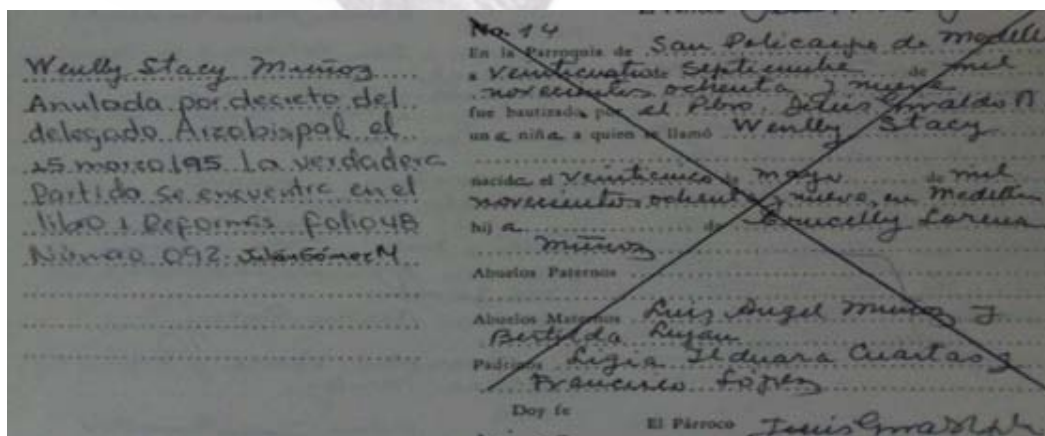 Wendly Stacy Muñoz
Anulada por decreto del
delegado Arzobispal el
25 marzo 195 La verdadera
Partida se encuentre en el
libro 1 Reformas folio 48
Número 092.
No. 14
En la Parroquia de San Policarpo de Medell
a veinticuatro de Septiembre de mil
novecientos ochenta y nueve
fue bautizada por el Pbro.
una niña a quien se llamó Wendly Stacy
nacida el Veinticinco de mayo de mil
novecientos ochenta y nueve, en Medellín
hija de Lorena
Muñoz
Abuelos Paternos
Abuelos Maternos Luis Angel Muñoz y
Bertilda Lujan
Padrinos Ligia Cuartas y
Francisco López
Doy fe
El Párroco